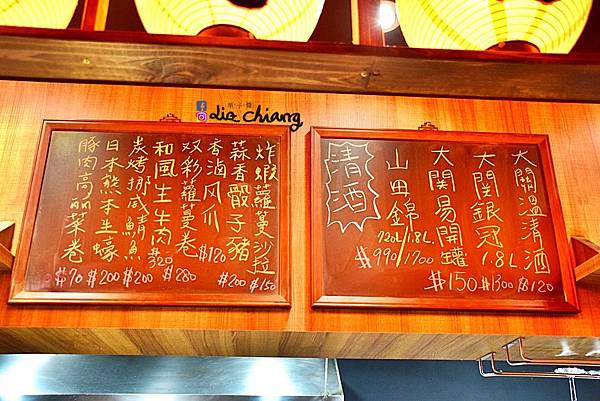 蔣·子·龍
dia chiang
炸蝦蘿蔓沙拉 $150
蒜香骰子豬 $200
香滷风爪 $120
双彩蘿蔓卷 $280
和風生牛肉 $320
炭烤挪威鯖魚 $200
日本熊本生蠔 $200
豚肉高丽菜卷 $70
大關溫清酒 $120
大関銀冠 1.8L. $1300
大関易開罐 $150
山田錦 720L/1.8L. $990/1700
清酒